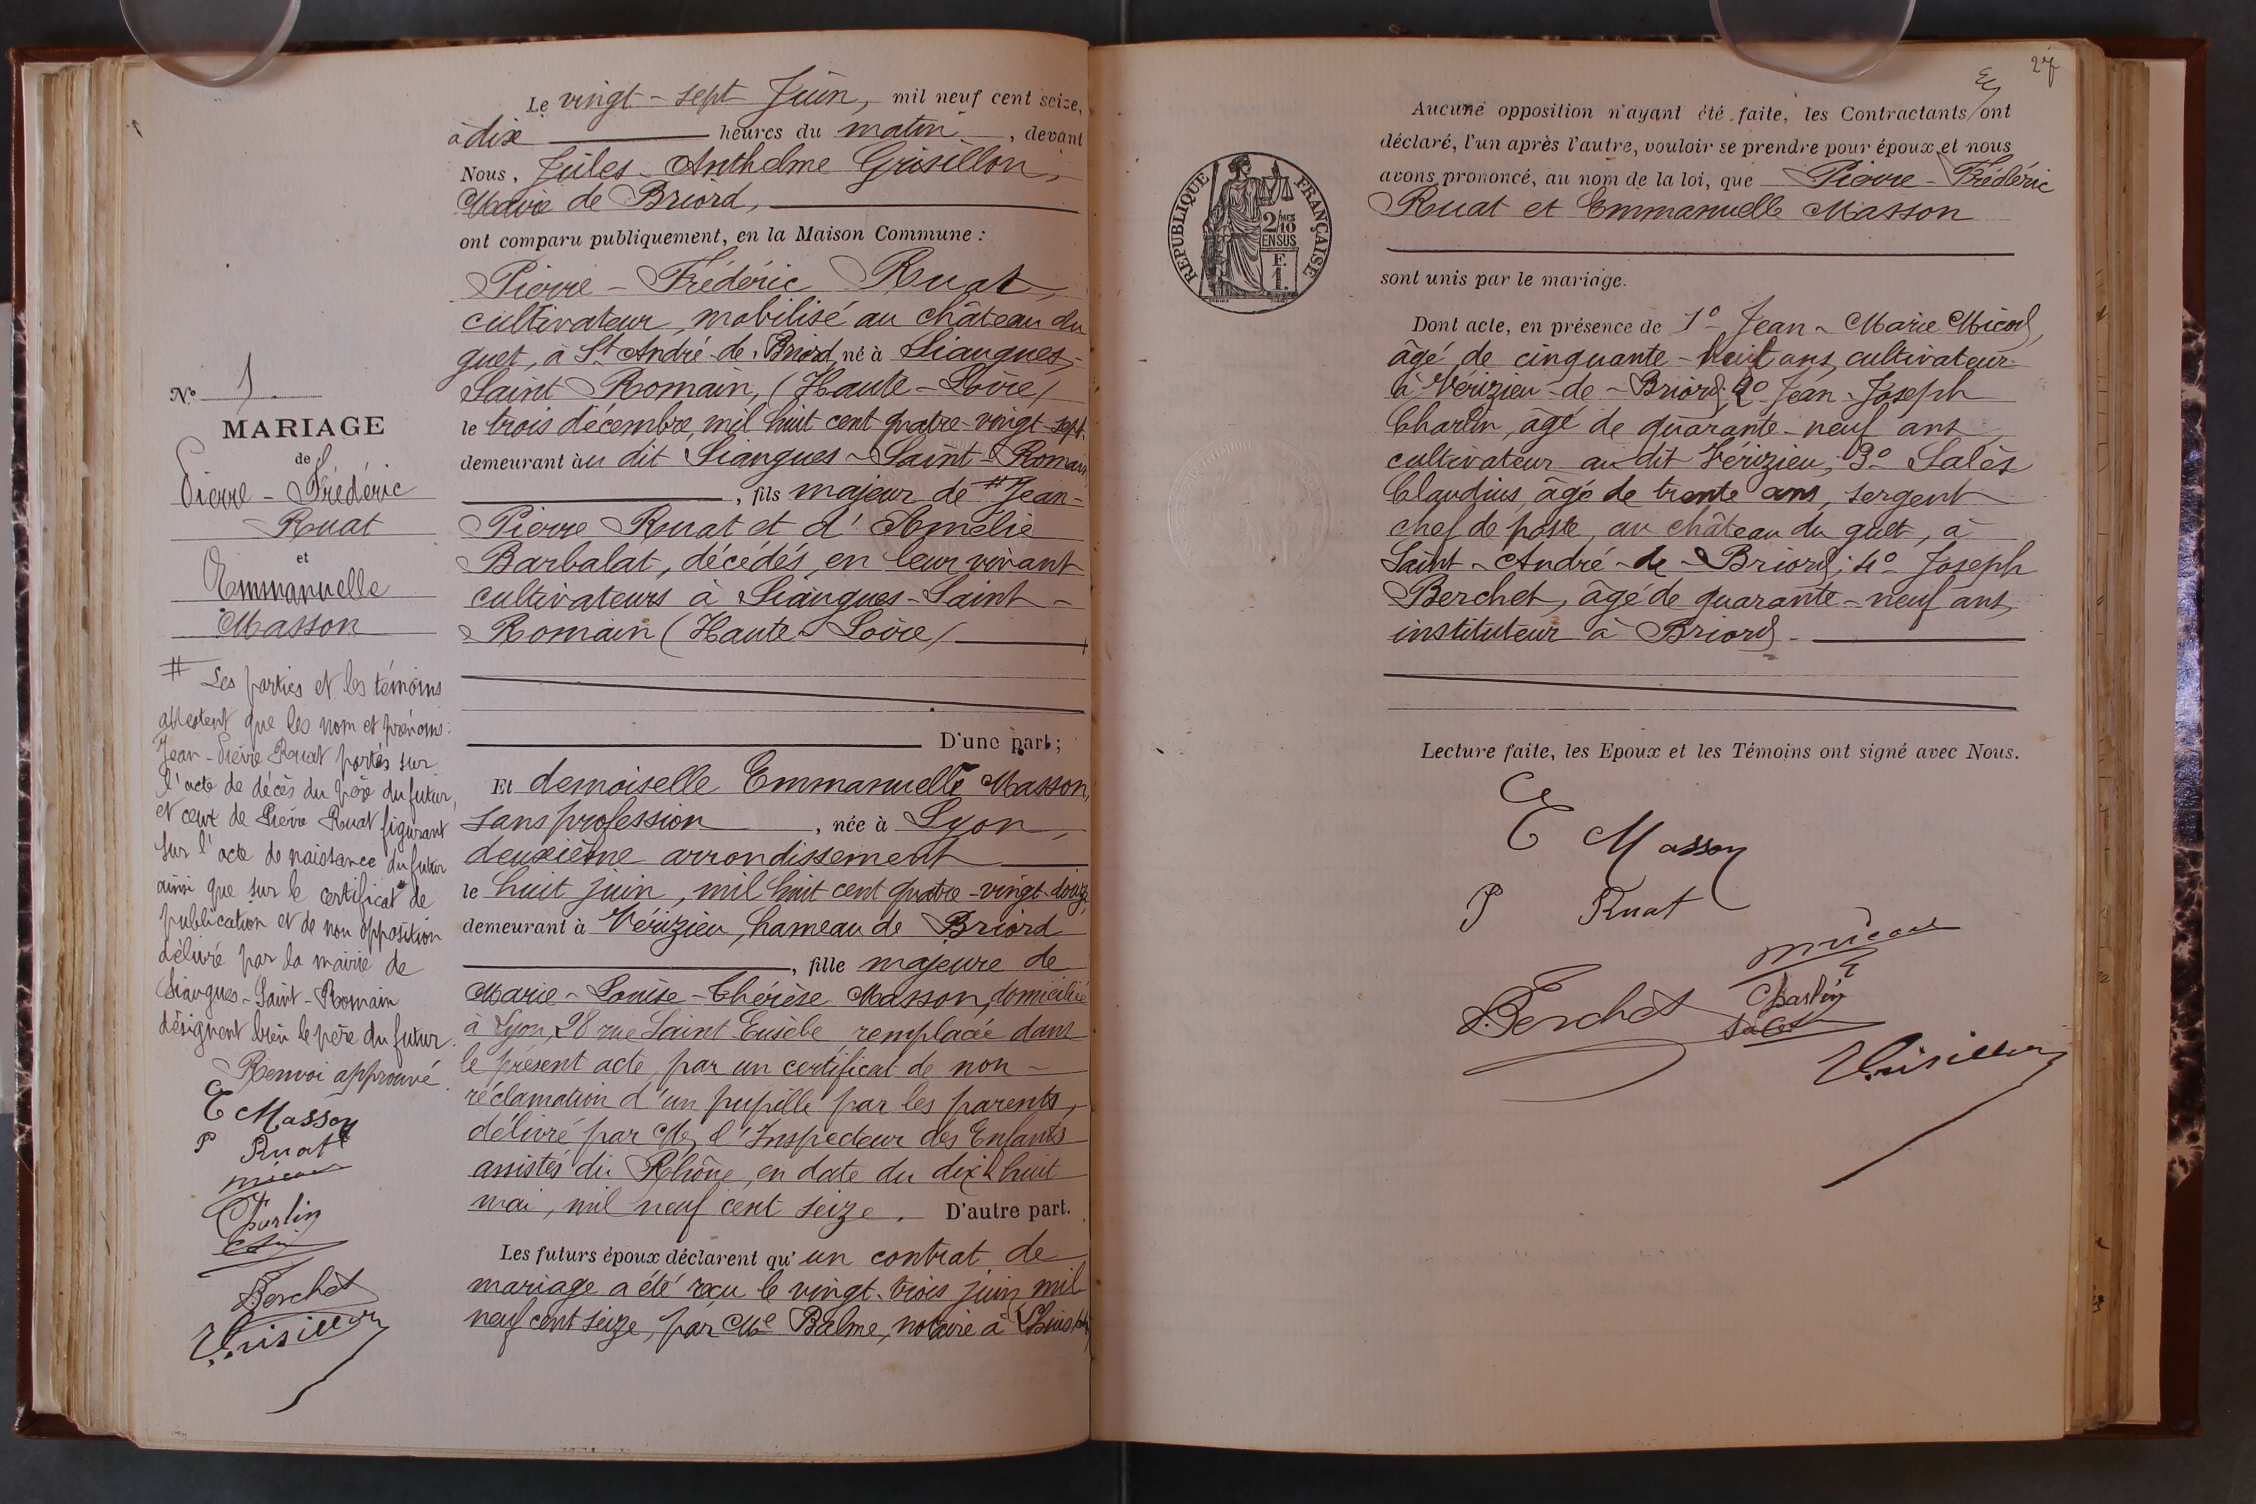 Nº 1
MARIAGE
de
Pierre - Frédéric
Ruat
et
Emmanuelle
Masson
# Les parties et les témoins
attestent que les nom et prénoms:
Jean-Pierre Ruat portés sur
l'acte de décès du père du futur,
et ceux de Pierre Ruat figurant
sur l'acte de naissance du futur
ainsi que sur le certificat de
publication et de non opposition
délivré par la mairie de
Siaugues-Saint-Romain
désignent bien le père du futur.
Renvoi approuvé.
E Masson
P Ruat
Micoud
Charlin
Berchet
Grisillon
Le vingt-sept Juin, mil neuf cent seize,
à dix heures du matin, devant
Nous, Jules-Anthelme Grisillon,
Maire de Briord,
ont comparu publiquement, en la Maison Commune :
Pierre-Frédéric Ruat,
cultivateur, mobilisé au château du
guet, à St André-de-Briord, né à Siaugues-
Saint Romain, (Haute-Loire)
le trois décembre, mil huit cent quatre-vingt-sept.
demeurant au dit Siaugues-Saint-Romain
, fils majeur de # Jean-
Pierre Ruat et d'Amélie
Barbalat, décédés, en leur vivant
cultivateurs à Siaugues-Saint-
Romain (Haute-Loire)
D'une part;
Et demoiselle Emmanuelle Masson,
sans profession, née à Lyon,
deuxième arrondissement
le huit juin, mil huit cent quatre-vingt-douze,
demeurant à Vérizieu, hameau de Briord
, fille majeure de
Marie-Louise-Thérèse Masson, domiciliée
à Lyon, 28 rue Saint Eusèbe, remplacée dans
le présent acte, par un certificat de non-
réclamation d'un pupille par les parents,
délivré par Mr l'Inspecteur des Enfants
assistés du Rhône, en date du dix huit
mai, mil neuf cent seize. D'autre part.
Les futurs époux déclarent qu'un contrat de
mariage a été reçu le vingt-trois juin mil
neuf cent seize, par Me Balme, notaire à Lhuis
27
RÉPUBLIQUE FRANÇAISE
2/10 MES
EN SUS
F.
1.
Aucune opposition n'ayant été faite, les Contractants ont
déclaré, l'un après l'autre, vouloir se prendre pour époux et nous
avons prononcé, au nom de la loi, que Pierre-Frédéric
Ruat et Emmanuelle Masson
sont unis par le mariage.
Dont acte, en présence de 1º Jean-Marie Micoud,
âgé de cinquante-huit ans, cultivateur
à Vérizieu-de-Briord; 2º Jean-Joseph
Charlin, âgé de quarante-neuf ans
cultivateur au dit Vérizieu; 3º Salès
Claudius, âgé de trente ans, sergent
chef de poste, au château du guet, à
Saint-André-de-Briord; 4º Joseph
Berchet, âgé de quarante-neuf ans,
instituteur à Briord.
Lecture faite, les Epoux et les Témoins ont signé avec Nous.
E Masson
P Ruat
Micoud
Charlin
Berchet Salès
Grisillon